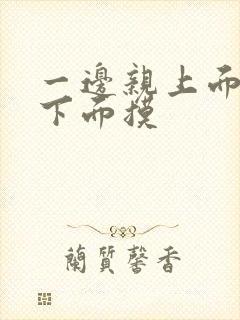 一邊親上面
下面摸
蘭質馨香